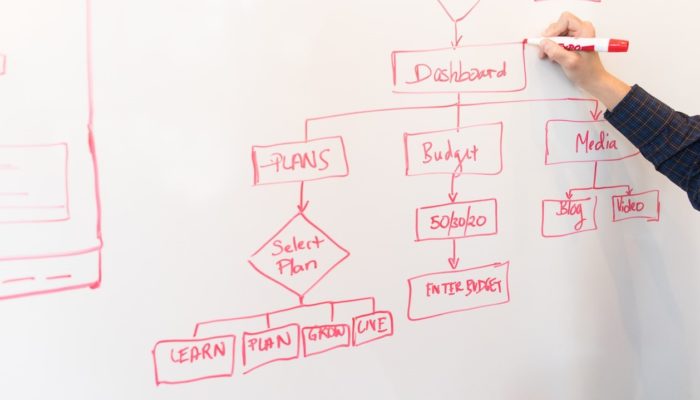 Dashboard
PLANS
Budget
Media
Select
Plan
50/30/20
Blog
Video
ENTER BUDGET
LEARN
PLAN
GROW
LIVE
EXPO